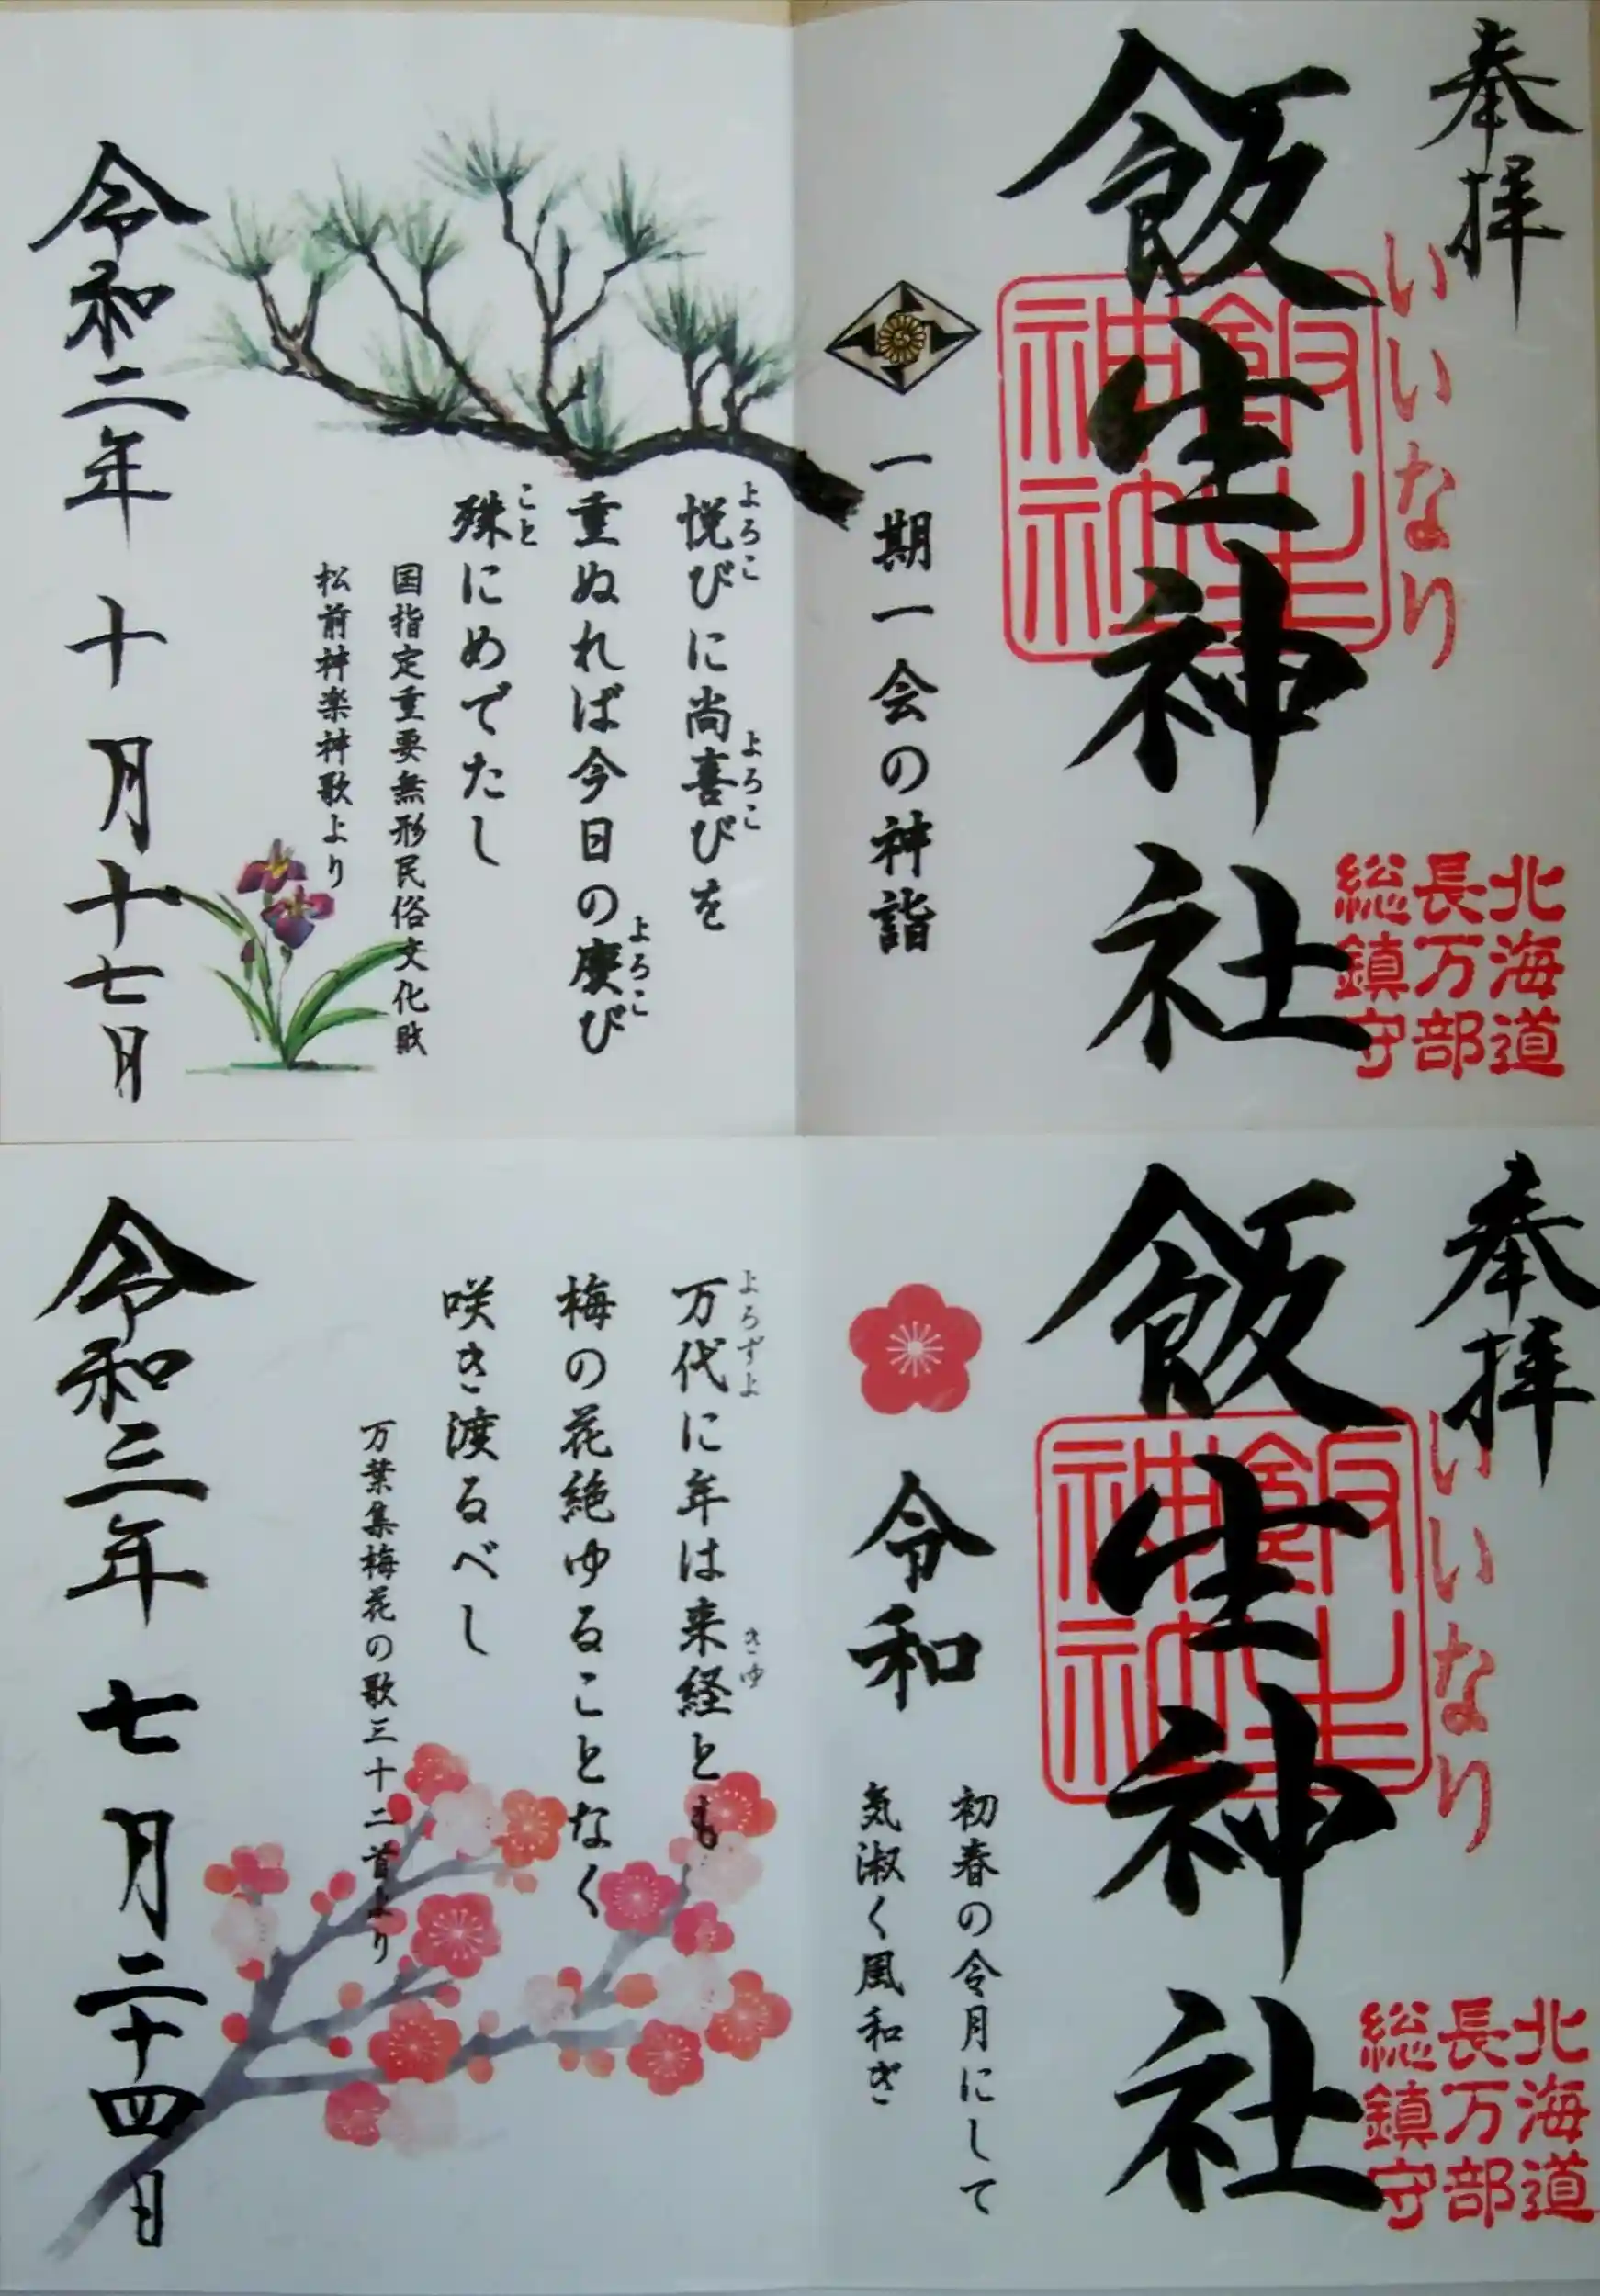 奉拝
いいなり
飯生神社
飯生神社
北海道
長万部
総鎮守
一期一会の神詣
悦びに尚喜びを
よろこ
よろこ
重ぬれば今日の慶び
よろこ
殊にめでたし
こと
国指定重要無形民俗文化財
松前神楽神歌より
令和二年 十月十七日
奉拝
いいなり
飯生神社
飯生神社
北海道
長万部
総鎮守
初春の令月にして
気淑く風和ぎ
令和
万代に年は来経とも
よろずよ
きゆ
梅の花絶ゆることなく
咲き渡るべし
万葉集梅花の歌三十二首より
令和三年 七月二十四日